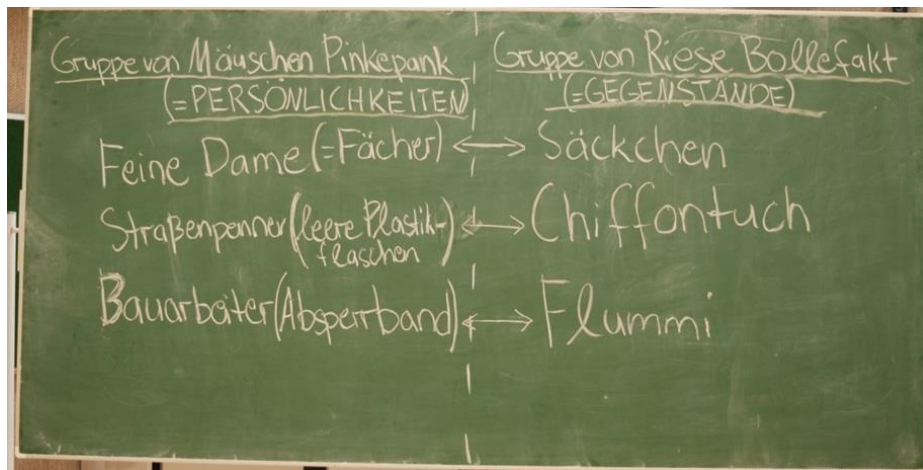 Gruppe von Mäuschen Pinkepank
(=PERSÖNLICHKEITEN)
Feine Dame (=Fächer)
Straßenpenner (leere Plastik-
flaschen)
Bauarbeiter (Absperrband)
Gruppe von Riese Bollefakt
(=GEGENSTÄNDE)
Säckchen
Chiffontuch
Flummi